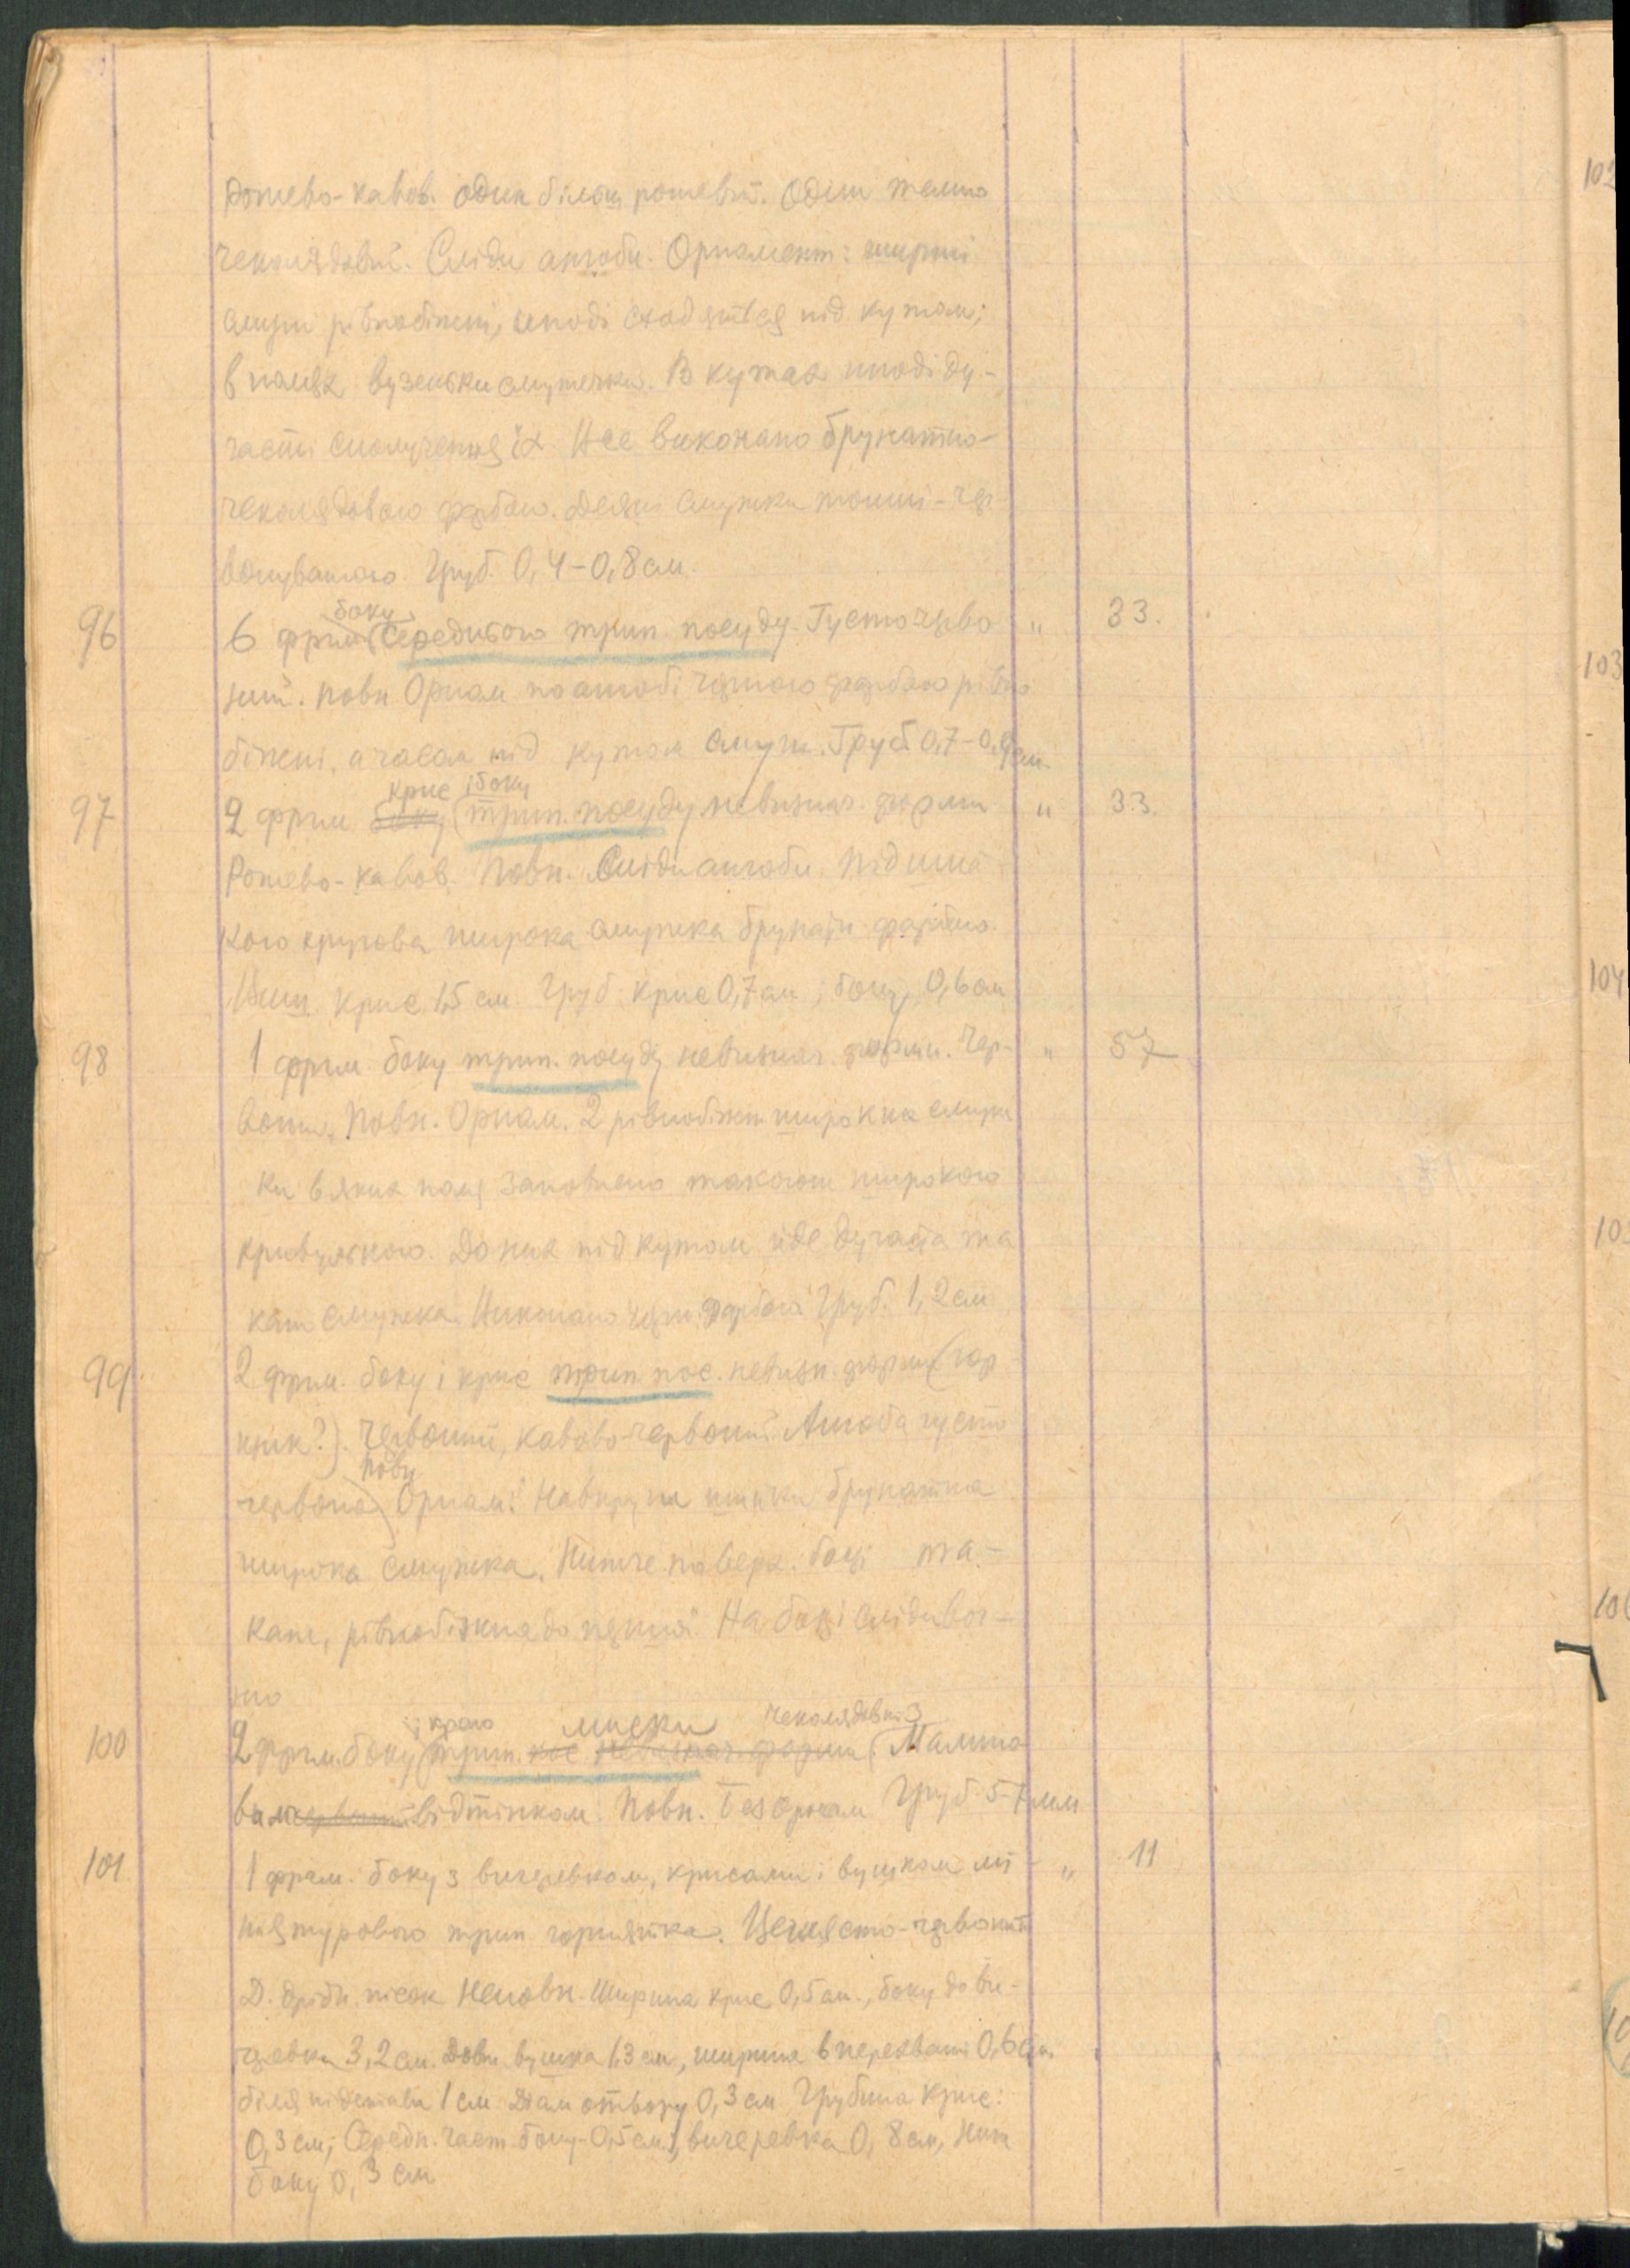 Рожево-кавов. один більш рожевий. Один темно
чеколядовий. Сліди ангоби. Орнамент: широкі
смуги рівнобіжні, иноді сходяться під кутом;
в полях вузенькі смужечки. В кутах иноді ду-
часті сполучення їх. Все виконано брунатно-
чеколядовою фарбою. Деякі смужки тонші - чер-
вонуватого. Груб. 0,4-0,8 см.
96 6 фрагм. боку середнього трип. посуду. Густо черво " 33.
ний. повн Орнам по ангобі чорною фарбою рівно
біжні, а часом під кутом смуги. Груб 0,7-0,9 см.
97 2 фрагм боку крис і боку трип. посуду невизнач. форми " 33.
Рожево-кавов. Повн. Сліди ангоби. Під ший
кою кругова широка смужка брунатн фарбою.
крис 1,5 см. Груб. крис 0,7 см, боку 0,6 см
98 1 фрагм боку трип. посуду невизнач. форми. Чер- " 57
вони. Повн. Орнам. 2 рівнобіжн широкі смуж
ки в яких поля заповнено широкою
кривулькою. До них під кутом йде дугаста та
кож смужка. Виконано чорн. фарбою Груб. 1,2 см
99. 2 фрагм. боку і крис трип. пос. невизн. форми (гор
щик?). Червоний, кавово-червоний. Ангоба густо
червона Повн Орнам: Навкруги шийки брунатна
широка смужка. Нижче по верх. боці та-
кож, рівнобіжна до першої На боці сліди вог-
ню
100 2 фрагм. боку і краю трип. пос невизнач. форми миски чеколядовий з Малино
вим червоним відтінком. Повн. Без орнам Груб 5-7 мм
101. 1 фрагм. боку з вичеревком, крисами і вушком мі- " 11
ніятурового трип горщятка. Цеглясто-червоний
Д. дрібн. пісок Неповн. Ширина крис 0,5 см., боку до ви-
черевка 3,2 см. Довж. вушка 1,3 см, ширина в перехваті 0,6 см.
біля підстави 1 см Діам отвору 0,3 см Грубина крис:
0,3 см; Середн. част. боку-0,5 см, вичеревка 0,8 см, Ниж
боку 0,3 см